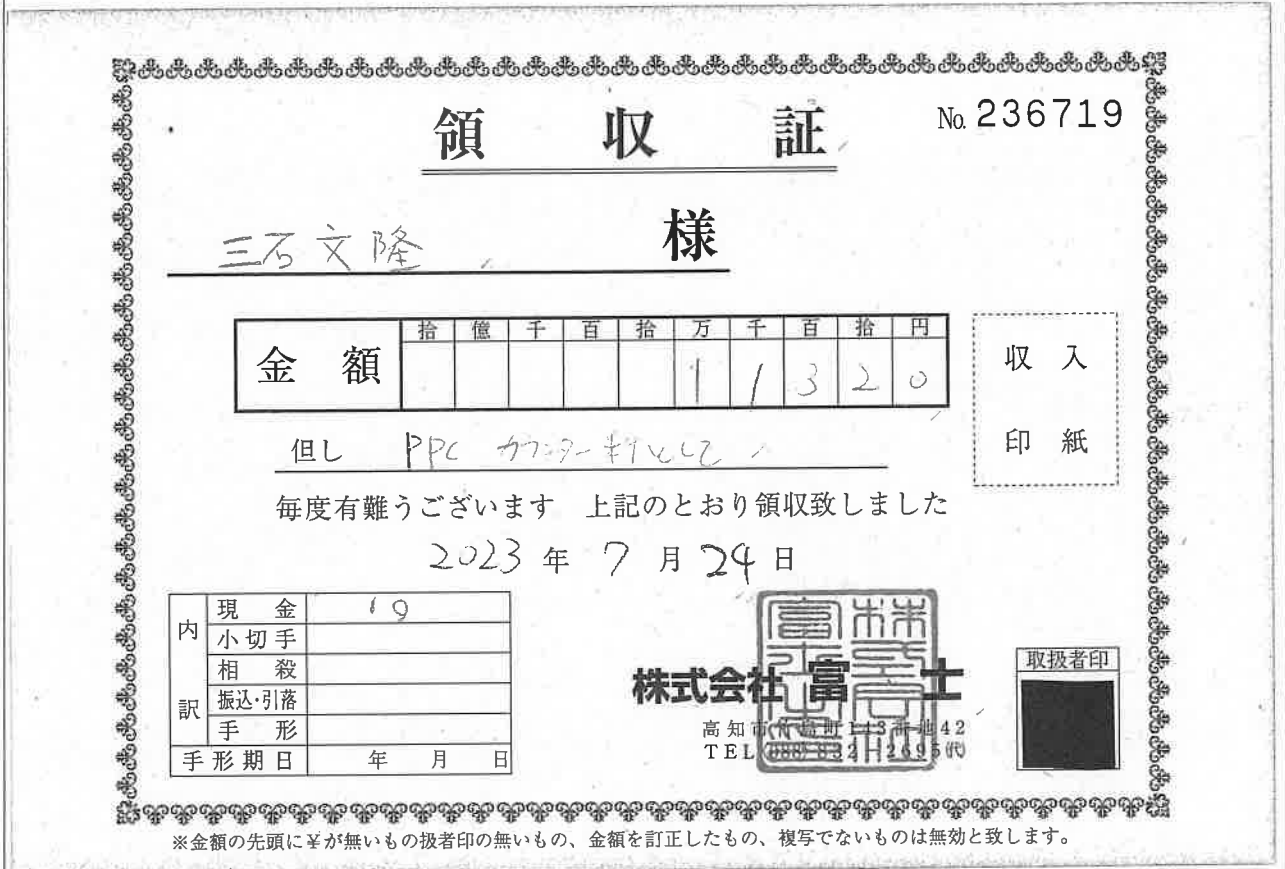 領収証
No. 236719
三石文隆 様
拾 億 千 百 拾 万 千 百 拾 円
金額 1 1 3 2 0
但し PPC カウンター料として
毎度有難うございます 上記のとおり領収致しました
2023年 7月 24日
収入
印紙
内訳
現金
小切手
相殺
振込・引落
手形
手形期日 年 月 日
株式会社 富士
高知市 町143番地42
TEL(088)832-2695㈹
取扱者印
※金額の先頭に¥が無いもの扱者印の無いもの、金額を訂正したもの、複写でないものは無効と致します。